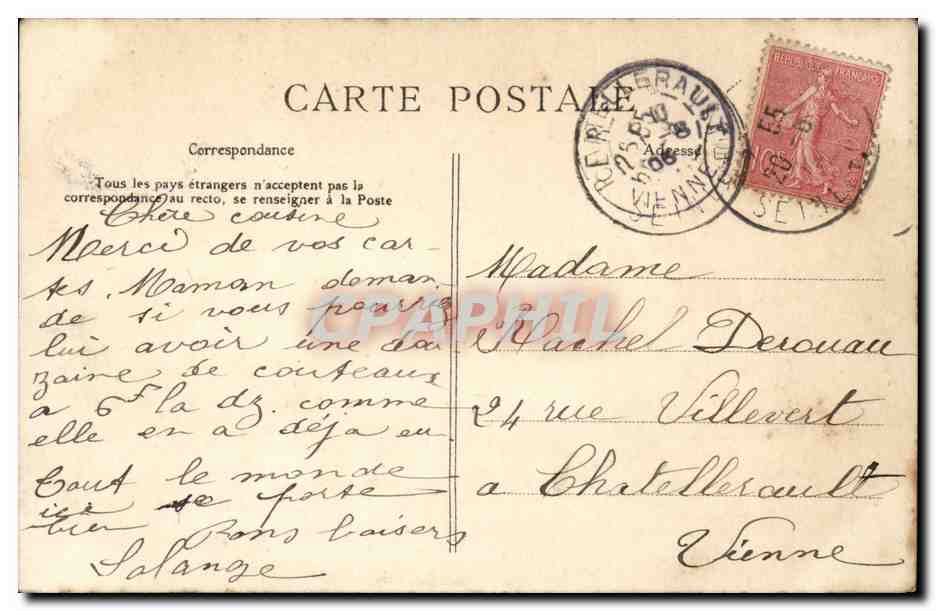 CARTE POSTALE
Correspondance
Adresse
Tous les pays étrangers n'acceptent pas la
correspondance au recto, se renseigner à la Poste
REPUBLIQUE FRANÇAISE
CHATELLERAULT
VIENNE
SEINE
Chère cousine
Merci de vos car-
tes. Maman deman
de si vous pourriez
lui avoir une dou
zaine de couteaux
a 6f la dz. comme
elle en a déja eu.
Tout le monde
ici se porte
bien
Bons baisers
Solange
Madame
Rachel Derouau
24 rue Villevert
a Chatellerault
Vienne
CPAPHIL